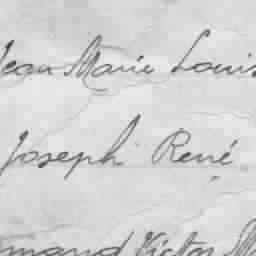 Jean Marie Louis
Joseph René
mand Victor M